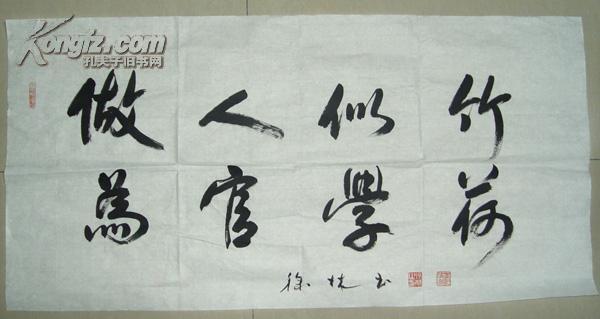 Kongfz.com
孔夫子旧书网
做人似竹
為官學荷
徐林书